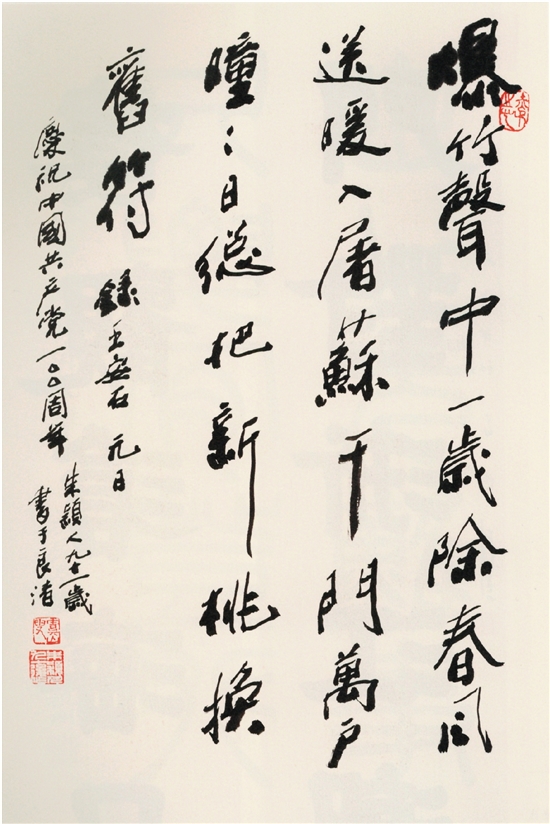 爆竹聲中一歲除春风
送暖入屠蘇千門萬户
曈〻日總把新桃換
舊符 錄王安石元日
慶祝中國共产党一〇〇周年
朱穎人九十一歲
書于良渚